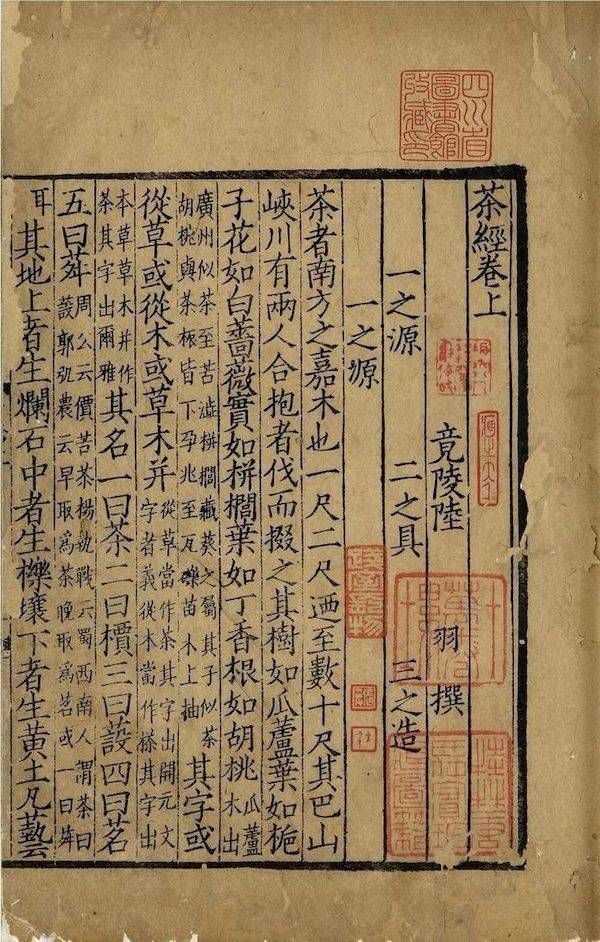 四川省圖書館收藏印
茶經卷上
竟陵陸 羽 撰
一之源 二之具 三之造
一之源
茶者南方之嘉木也一尺二尺迺至數十尺其巴山
峽川有兩人合抱者伐而掇之其樹如瓜蘆葉如梔
子花如白薔薇實如栟櫚葉如丁香根如胡桃 瓜蘆木出
廣州似茶至苦澁栟櫚藏葵之屬其子似茶胡桃與茶根皆下孕兆至瓦礫苗木上抽 其字或
從草或從木或草木并 從草當作茶其字出開元文字者義從木當作搽其字出
本草草木并作茶其字出爾雅 其名一曰茶二曰檟三曰設四曰茗
五曰荈 周公云價苦茶楊執戟云蜀西南人謂茶曰蔎郭弘農云早取爲茶晚取爲茗或一曰荈
耳 其地上者生爛石中者生櫟壤下者生黃土凡藝